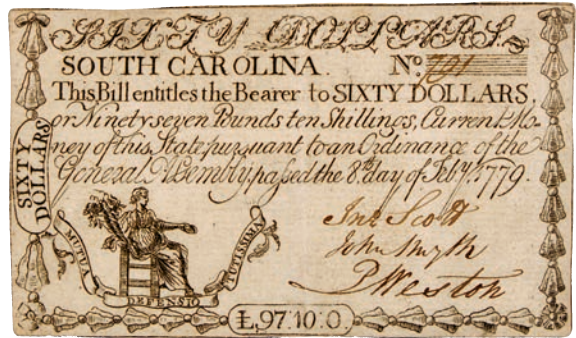 SIXTY DOLLARS.
SOUTH CAROLINA. No.
This Bill entitles the Bearer to SIXTY DOLLARS,
or Ninety seven Pounds ten Shillings, Current Mo-
ney of this State, pursuant to an Ordinance of the
General Assembly, passed the 8th. day of Feby. 1779.
SIXTY
DOLLARS
Jno Scott
John Smyth
P Weston
MUTUA
DEFENSIO
TUTISSIMA
Ł,97:10:0.